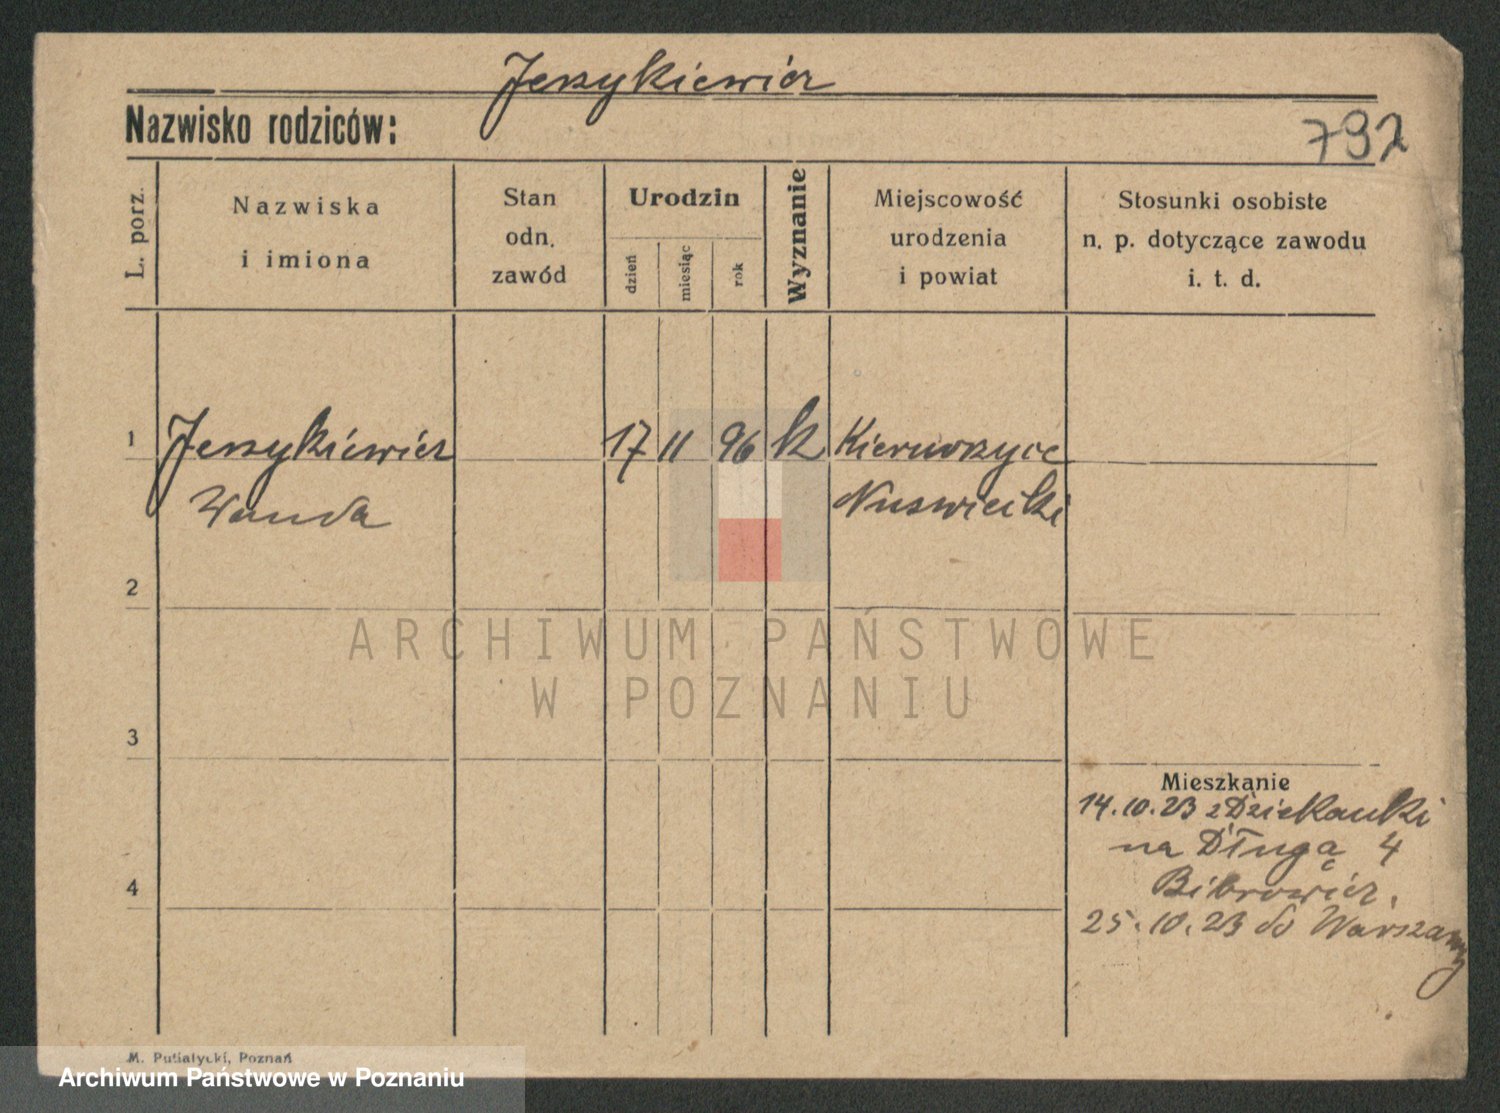 Jerzykiewicz
Nazwisko rodziców:
792
L. porz.
Nazwiska
i imiona
Stan
odn.
zawód
Urodzin
dzień
miesiąc
rok
Wyznanie
Miejscowość
urodzenia
i powiat
Stosunki osobiste
n. p. dotyczące zawodu
i. t. d.
1
Jerzykiewicz
Wanda
17 11 96 k
2
ARCHIWUM PAŃSTWOWE
W POZNANIU
3
Mieszkanie
14.10.23 z Dziekanki
na Długą 4
4
Bibrowicz.
25.10.23 do Warszawy
M. Putiatycki, Poznań
Archiwum Państwowe w Poznaniu